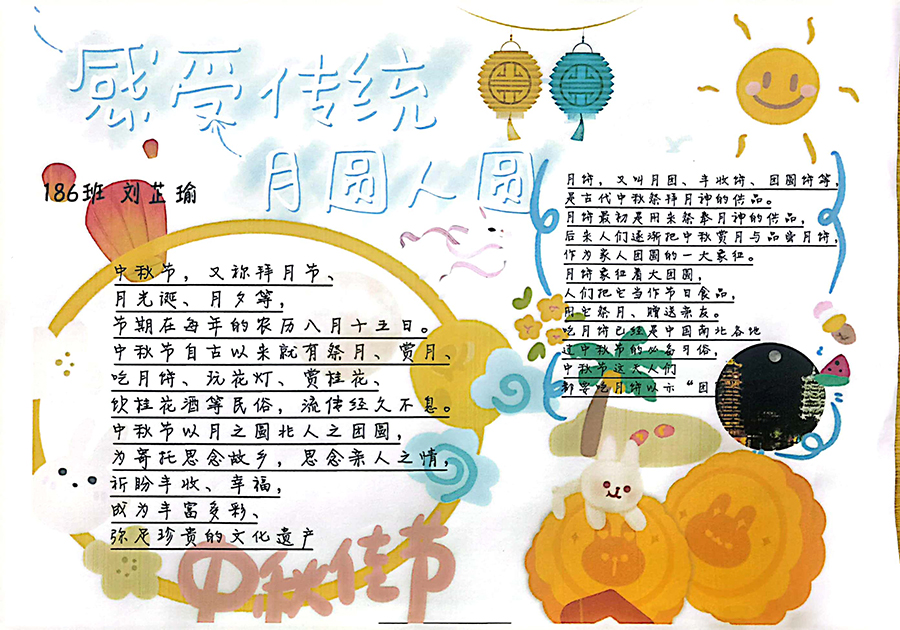 感受传统
月圆人圆
186班 刘芷瑜
中秋节，又称拜月节、
月光诞、月夕等，
节期在每年的农历八月十五日。
中秋节自古以来就有祭月、赏月、
吃月饼、玩花灯、赏桂花、
饮桂花酒等民俗，流传经久不息。
中秋节以月之圆兆人之团圆，
为寄托思念故乡，思念亲人之情，
祈盼丰收、幸福，
成为丰富多彩、
弥足珍贵的文化遗产
月饼，又叫月团、丰收饼、团圆饼等，
是古代中秋祭拜月神的供品。
月饼最初是用来祭奉月神的供品，
后来人们逐渐把中秋赏月与品尝月饼，
作为家人团圆的一大象征。
月饼象征着大团圆，
人们把它当作节日食品，
用它祭月、赠送亲友。
吃月饼已经是中国南北各地
过中秋节的必备习俗，
中秋节这天人们
都要吃月饼以示“团
中秋佳节